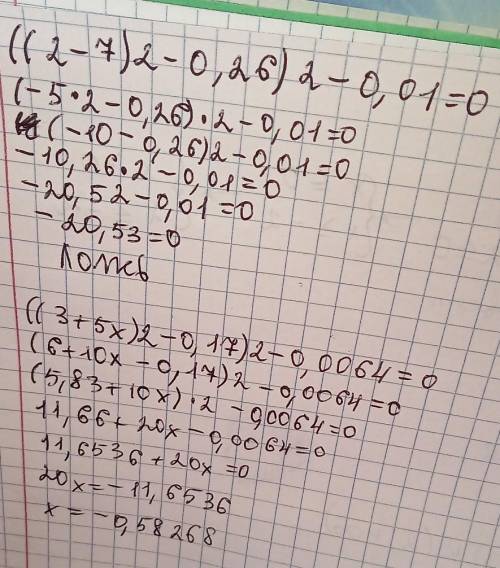 ((2-7)2-0,26)2-0,01=0
(-5·2-0,26)·2-0,01=0
(-10-0,26)2-0,01=0
-10,26·2-0,01=0
-20,52-0,01=0
-20,53=0
Ложь
((3+5x)2-0,17)2-0,0064=0
(6+10x-0,17)2-0,0064=0
(5,83+10x)·2-0,0064=0
11,66+20x-0,0064=0
11,6536+20x=0
20x=-11,6536
x=-0,58268